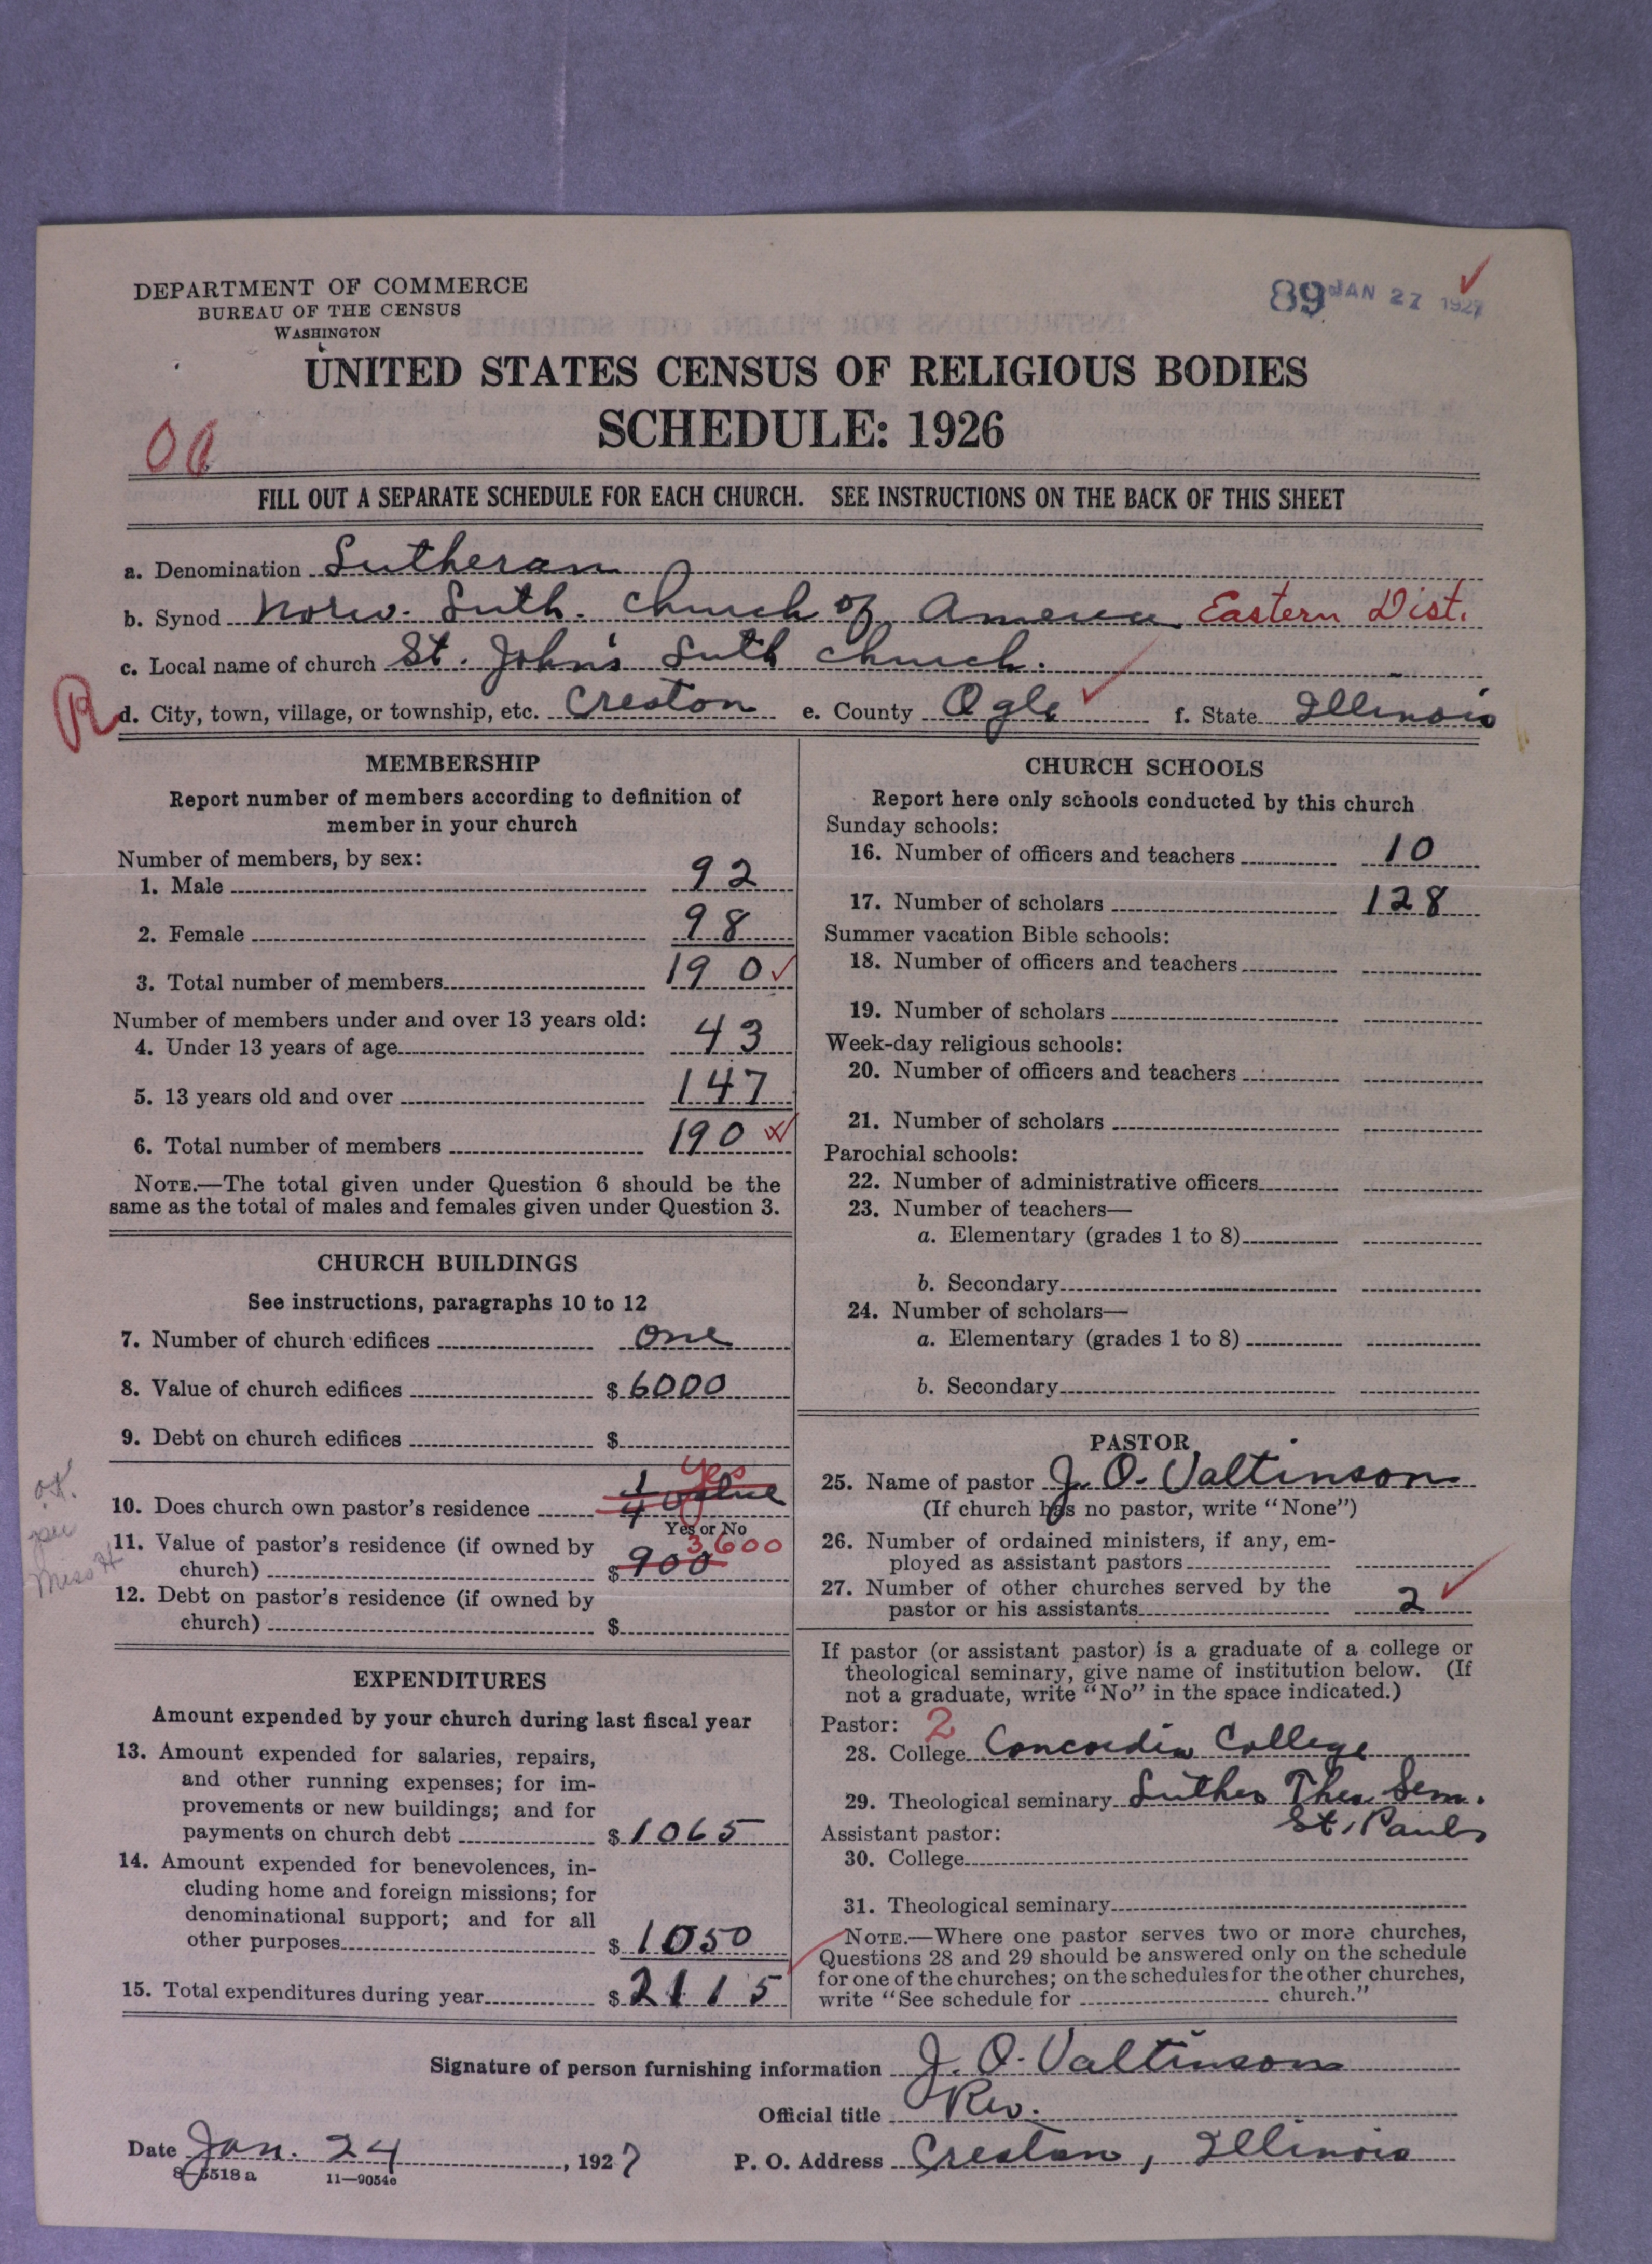 DEPARTMENT OF COMMERCE
BUREAU OF THE CENSUS
WASHINGTON
89 JAN 27 1927
UNITED STATES CENSUS OF RELIGIOUS BODIES
SCHEDULE: 1926
FILL OUT A SEPARATE SCHEDULE FOR EACH CHURCH. SEE INSTRUCTIONS ON THE BACK OF THIS SHEET
a. Denomination Lutheran
b. Synod Norw. Luth. Church of America Eastern Dist.
c. Local name of church St. John's Luth Church.
R
d. City, town, village, or township, etc. Creston e. County Ogle f. State Illinois
MEMBERSHIP
Report number of members according to definition of
member in your church
Number of members, by sex:
1. Male 92
2. Female 98
3. Total number of members 190
Number of members under and over 13 years old:
4. Under 13 years of age 43
5. 13 years old and over 147
6. Total number of members 190
NOTE.—The total given under Question 6 should be the
same as the total of males and females given under Question 3.
CHURCH BUILDINGS
See instructions, paragraphs 10 to 12
7. Number of church edifices one
8. Value of church edifices $ 6000
9. Debt on church edifices $
Yes
10. Does church own pastor's residence 1/4 value
Yes or No
11. Value of pastor's residence (if owned by
church) $ 900 3600
12. Debt on pastor's residence (if owned by
church) $
o.k.
per
Miss H
EXPENDITURES
Amount expended by your church during last fiscal year
13. Amount expended for salaries, repairs,
and other running expenses; for im-
provements or new buildings; and for
payments on church debt $ 1065
14. Amount expended for benevolences, in-
cluding home and foreign missions; for
denominational support; and for all
other purposes $ 1050
15. Total expenditures during year $ 2115
CHURCH SCHOOLS
Report here only schools conducted by this church
Sunday schools:
16. Number of officers and teachers 10
17. Number of scholars 128
Summer vacation Bible schools:
18. Number of officers and teachers
19. Number of scholars
Week-day religious schools:
20. Number of officers and teachers
21. Number of scholars
Parochial schools:
22. Number of administrative officers
23. Number of teachers—
a. Elementary (grades 1 to 8)
b. Secondary
24. Number of scholars—
a. Elementary (grades 1 to 8)
b. Secondary
PASTOR
25. Name of pastor J. O. Valtinson
(If church has no pastor, write "None")
26. Number of ordained ministers, if any, em-
ployed as assistant pastors
27. Number of other churches served by the
pastor or his assistants 2
If pastor (or assistant pastor) is a graduate of a college or
theological seminary, give name of institution below. (If
not a graduate, write "No" in the space indicated.)
Pastor: 2
28. College Concordia College
29. Theological seminary Luther Theo. Sem.
St. Paul
Assistant pastor:
30. College
31. Theological seminary
NOTE.—Where one pastor serves two or more churches,
Questions 28 and 29 should be answered only on the schedule
for one of the churches; on the schedules for the other churches,
write "See schedule for church."
Signature of person furnishing information J. O. Valtinson
Official title Rev.
Date Jan. 24, 1927 P. O. Address Creston, Illinois
8—5518 a 11—9054e